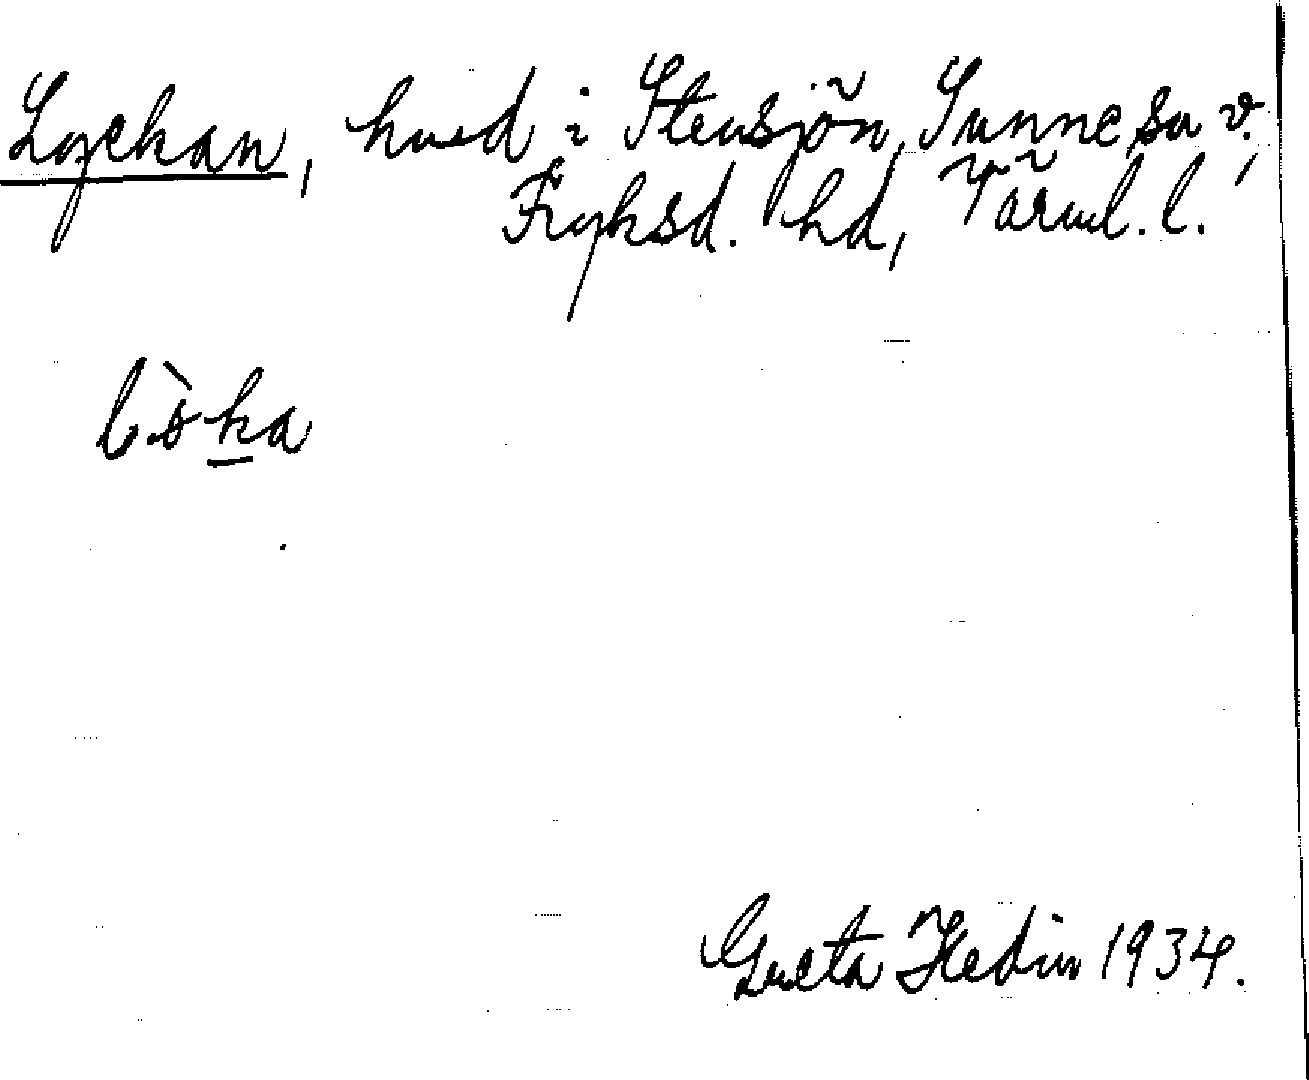 Lyckan, hmd i Stensjön, Sunne sn v.,
Fryksd. hd, Värml. l.
lø̀ka
Greta Hedin 1934.